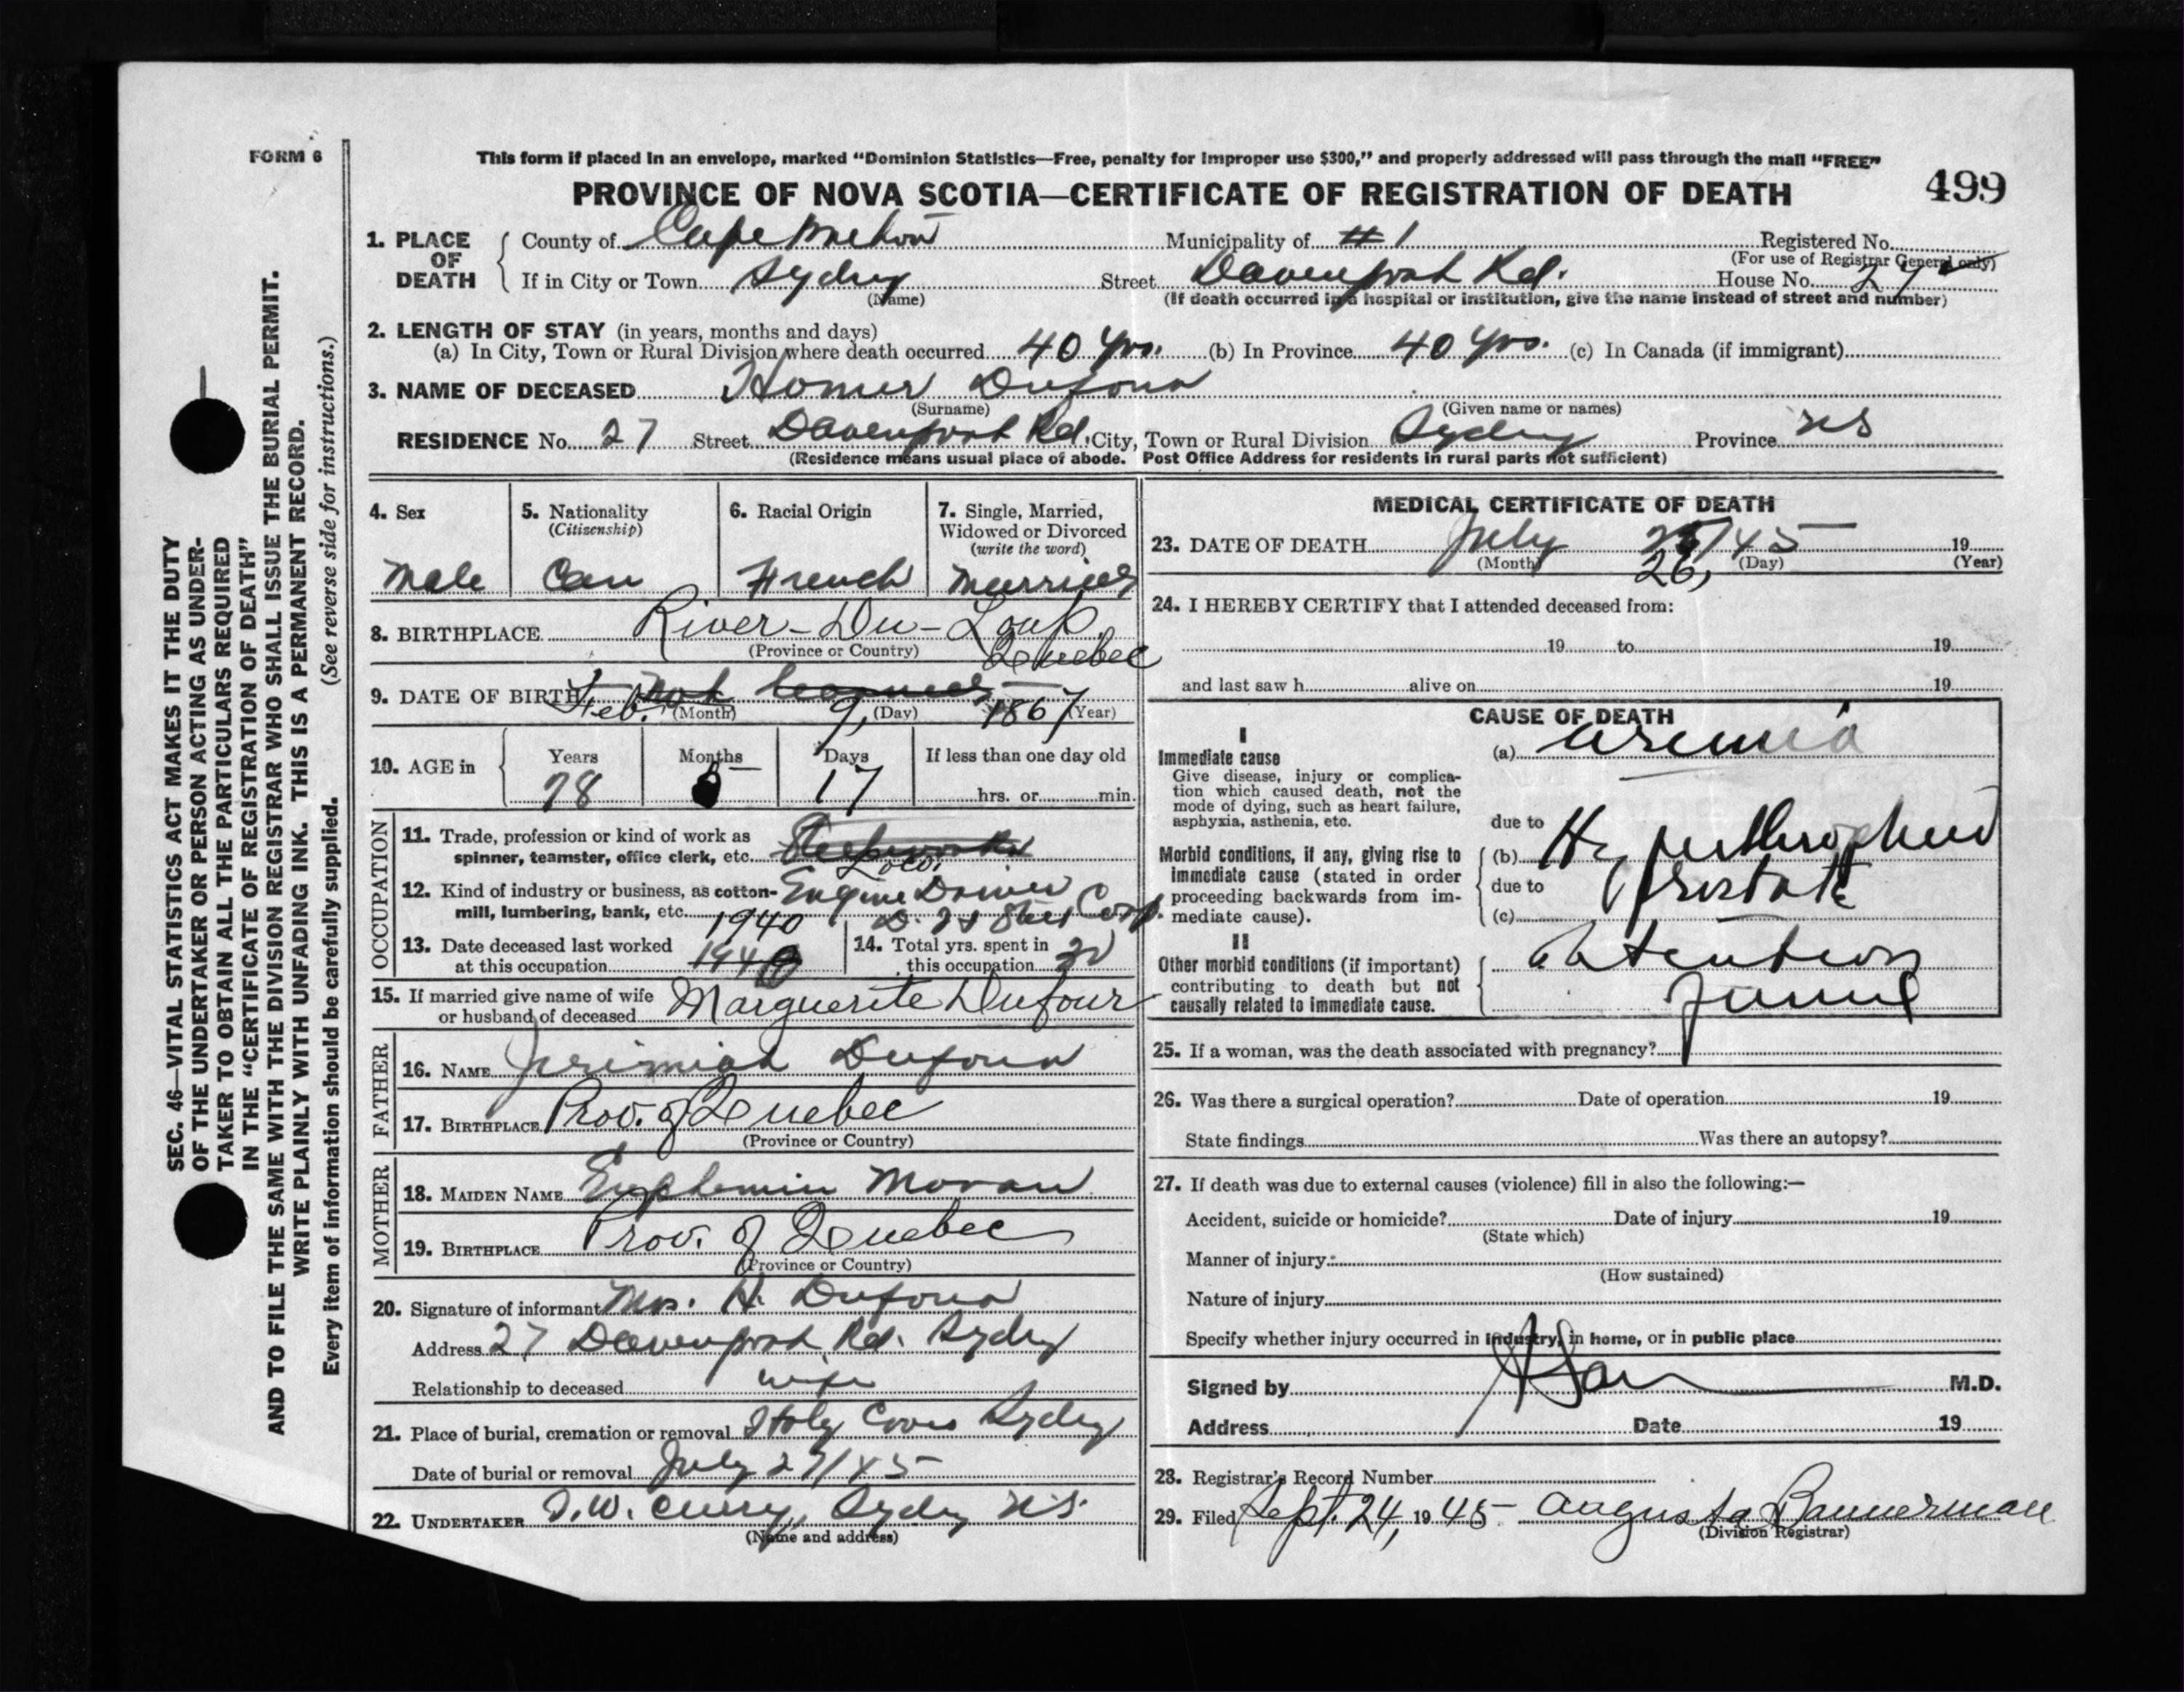 FORM 6
This form if placed in an envelope, marked “Dominion Statistics—Free, penalty for improper use $300,” and properly addressed will pass through the mail “FREE”
PROVINCE OF NOVA SCOTIA—CERTIFICATE OF REGISTRATION OF DEATH 499
1. PLACE OF DEATH County of Cape Breton Municipality of # 1 Registered No.
(For use of Registrar General only)
If in City or Town Sydney Street Davenport Rd. House No. 27
(Name) (If death occurred in a hospital or institution, give the name instead of street and number)
2. LENGTH OF STAY (in years, months and days)
(a) In City, Town or Rural Division where death occurred 40 yrs. (b) In Province 40 yrs. (c) In Canada (if immigrant)
3. NAME OF DECEASED Homer Dufour
(Surname) (Given name or names)
RESIDENCE No. 27 Street Davenport Rd. City, Town or Rural Division Sydney Province NS
(Residence means usual place of abode. Post Office Address for residents in rural parts not sufficient)
4. Sex 5. Nationality (Citizenship) 6. Racial Origin 7. Single, Married, Widowed or Divorced (write the word)
Male Can French Married
8. BIRTHPLACE River-Du-Loup, Quebec
(Province or Country)
9. DATE OF BIRTH Feb. 9, 1867
(Month) (Day) (Year)
10. AGE in Years Months Days If less than one day old
78 17 hrs. or min.
OCCUPATION
11. Trade, profession or kind of work as
spinner, teamster, office clerk, etc. Steelworker
Loco.
12. Kind of industry or business, as cotton- Engine Driver
mill, lumbering, bank, etc. D. & Steel Corp.
1940
13. Date deceased last worked
at this occupation 1940
14. Total yrs. spent in
this occupation 30
15. If married give name of wife
or husband of deceased Marguerite Dufour
FATHER
16. NAME Jerimiah Dufour
17. BIRTHPLACE Prov. of Quebec
(Province or Country)
MOTHER
18. MAIDEN NAME Euphemin Moran
19. BIRTHPLACE Prov. of Quebec
(Province or Country)
20. Signature of informant Mrs. H. Dufour
Address 27 Davenport Rd. Sydney
Relationship to deceased wife
21. Place of burial, cremation or removal Holy Cross Sydney
Date of burial or removal July 27/45
22. UNDERTAKER T.W. Curry, Sydney NS.
(Name and address)
MEDICAL CERTIFICATE OF DEATH
23. DATE OF DEATH July 26, /45 19
(Month) (Day) (Year)
24. I HEREBY CERTIFY that I attended deceased from:
19 to 19
and last saw h alive on 19
CAUSE OF DEATH
I
Immediate cause (a) Uremia
Give disease, injury or complica-
tion which caused death, not the
mode of dying, such as heart failure,
asphyxia, asthenia, etc. due to
Morbid conditions, if any, giving rise to (b) Hyperthrophied
immediate cause (stated in order due to prostate
proceeding backwards from im-
mediate cause). (c)
II
Other morbid conditions (if important)
contributing to death but not
causally related to immediate cause.
25. If a woman, was the death associated with pregnancy?
26. Was there a surgical operation? Date of operation 19
State findings Was there an autopsy?
27. If death was due to external causes (violence) fill in also the following:—
Accident, suicide or homicide? Date of injury 19
(State which)
Manner of injury
(How sustained)
Nature of injury
Specify whether injury occurred in industry, in home, or in public place
Signed by M.D.
Address Date 19
28. Registrar's Record Number
29. Filed Sept. 24, 1945 Augusta Bannerman
(Division Registrar)
SEC. 46—VITAL STATISTICS ACT MAKES IT THE DUTY
OF THE UNDERTAKER OR PERSON ACTING AS UNDER-
TAKER TO OBTAIN ALL THE PARTICULARS REQUIRED
IN THE “CERTIFICATE OF REGISTRATION OF DEATH”
AND TO FILE THE SAME WITH THE DIVISION REGISTRAR WHO SHALL ISSUE THE BURIAL PERMIT.
WRITE PLAINLY WITH UNFADING INK. THIS IS A PERMANENT RECORD.
Every item of information should be carefully supplied. (See reverse side for instructions.)